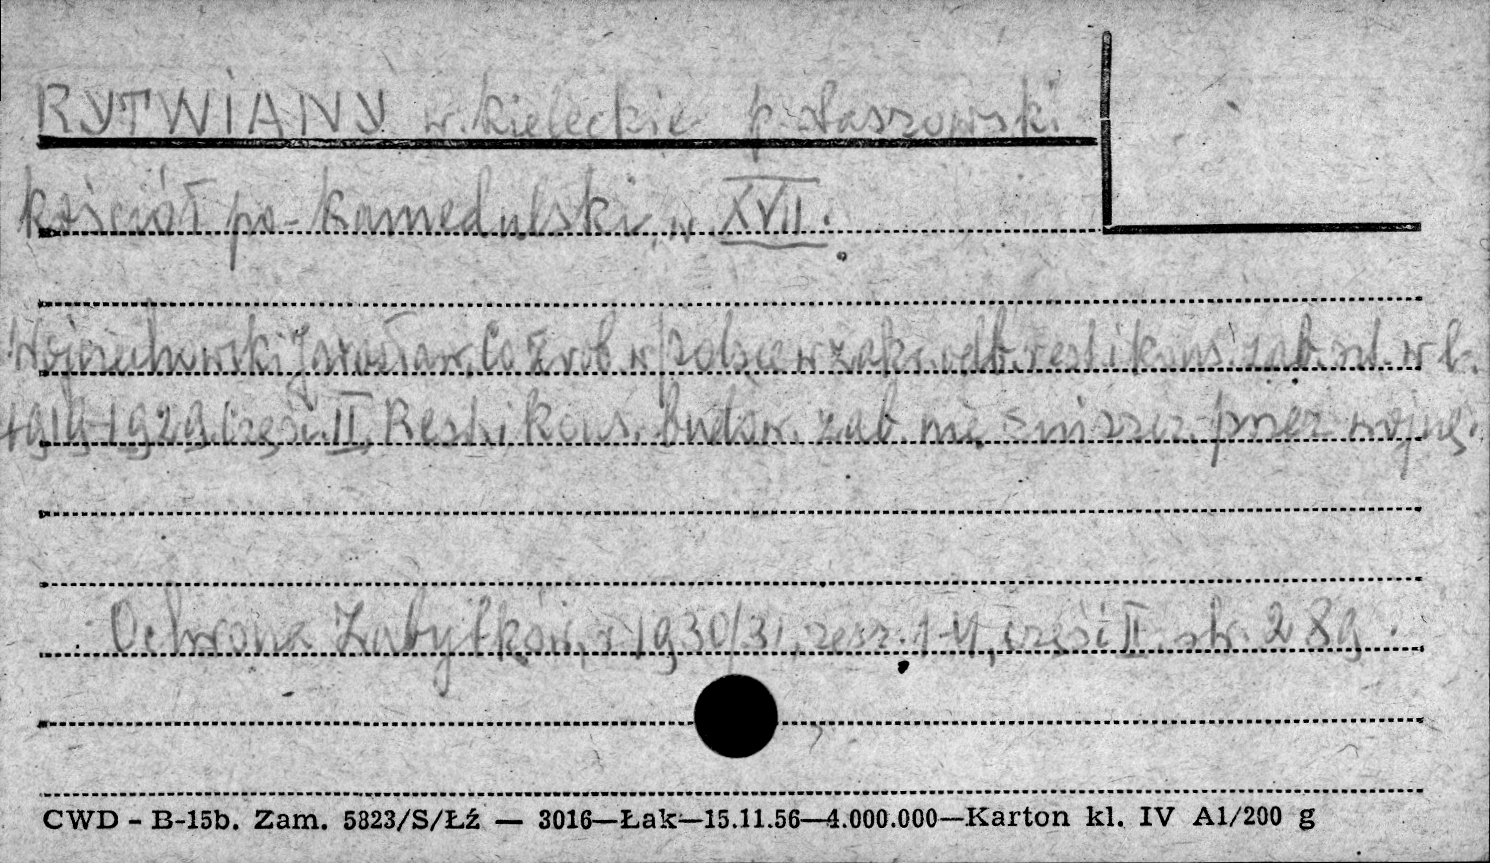 RYTWIANY w. kieleckie p. staszowski
kościół po-kamedulski, w XVII.
Wojciechowski Jarosław, Co zrob. w Polsce w zakr. odb. rest i kons. zab. szt. w l.
1919-1929. Część II, Rest. i kons. budow. zab. nie zniszcz. przez wojnę.
Ochrona Zabytków, r 1930/31, zesz. 1-4, część II. str. 289.
CWD - B-15b. Zam. 5823/S/ŁŹ — 3016—Łak—15.11.56—4.000.000—Karton kl. IV A1/200 g